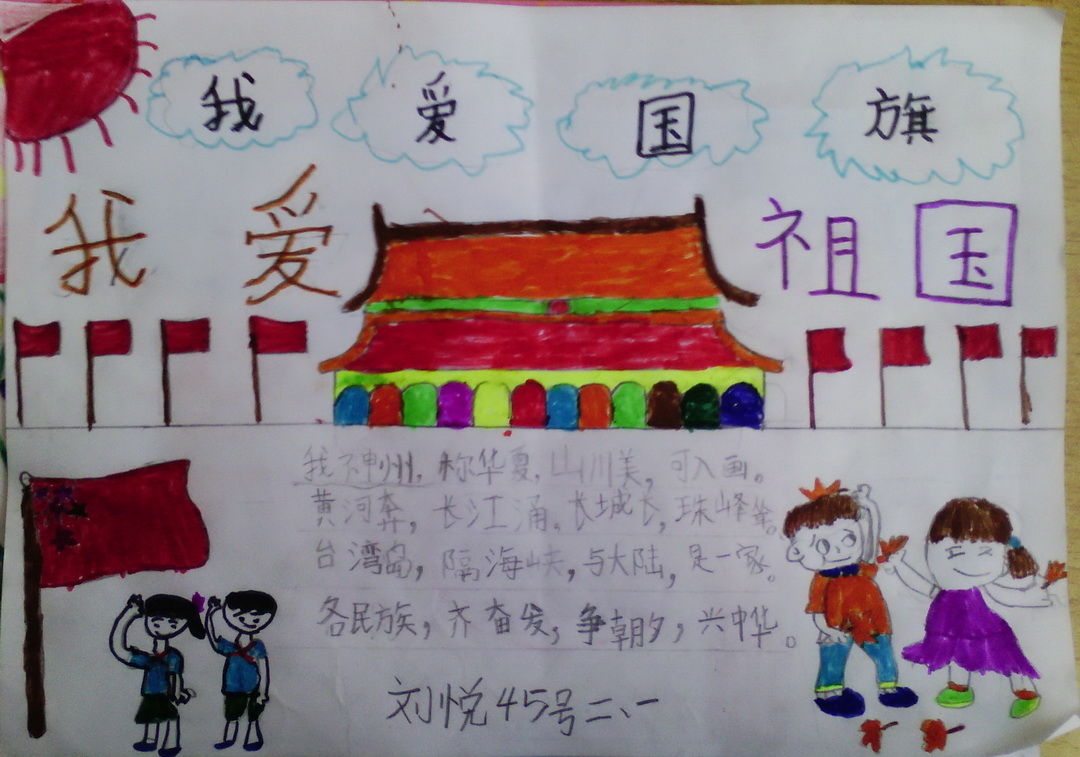 我爱国旗
我爱祖国
我神州，称华夏，山川美，可入画。
黄河奔，长江涌。长城长，珠峰耸。
台湾岛，隔海峡，与大陆，是一家。
各民族，齐奋发，争朝夕，兴中华。
刘悦45号二、一